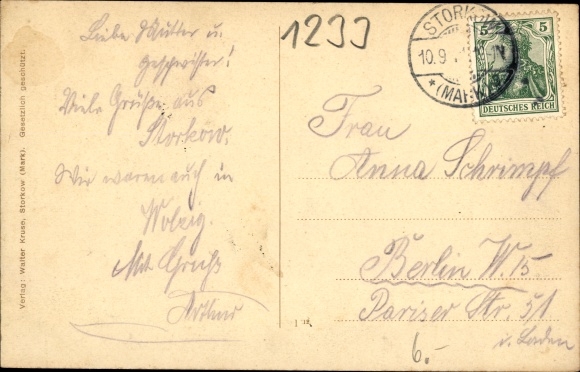 Liebe Mutter u.
Geschwister!
Viele Grüße aus
Storkow.
Wir waren auch in
Wolzig.
Mit Gruß
Arthur
1233
STORKOW
10.9.
* (MARK)
5 5
DEUTSCHES REICH
Frau
Anna Schrimpf
Berlin W. 15
Pariser Str. 51
i. Laden
6.-
Verlag: Walter Kruse, Storkow (Mark). Gesetzlich geschützt.